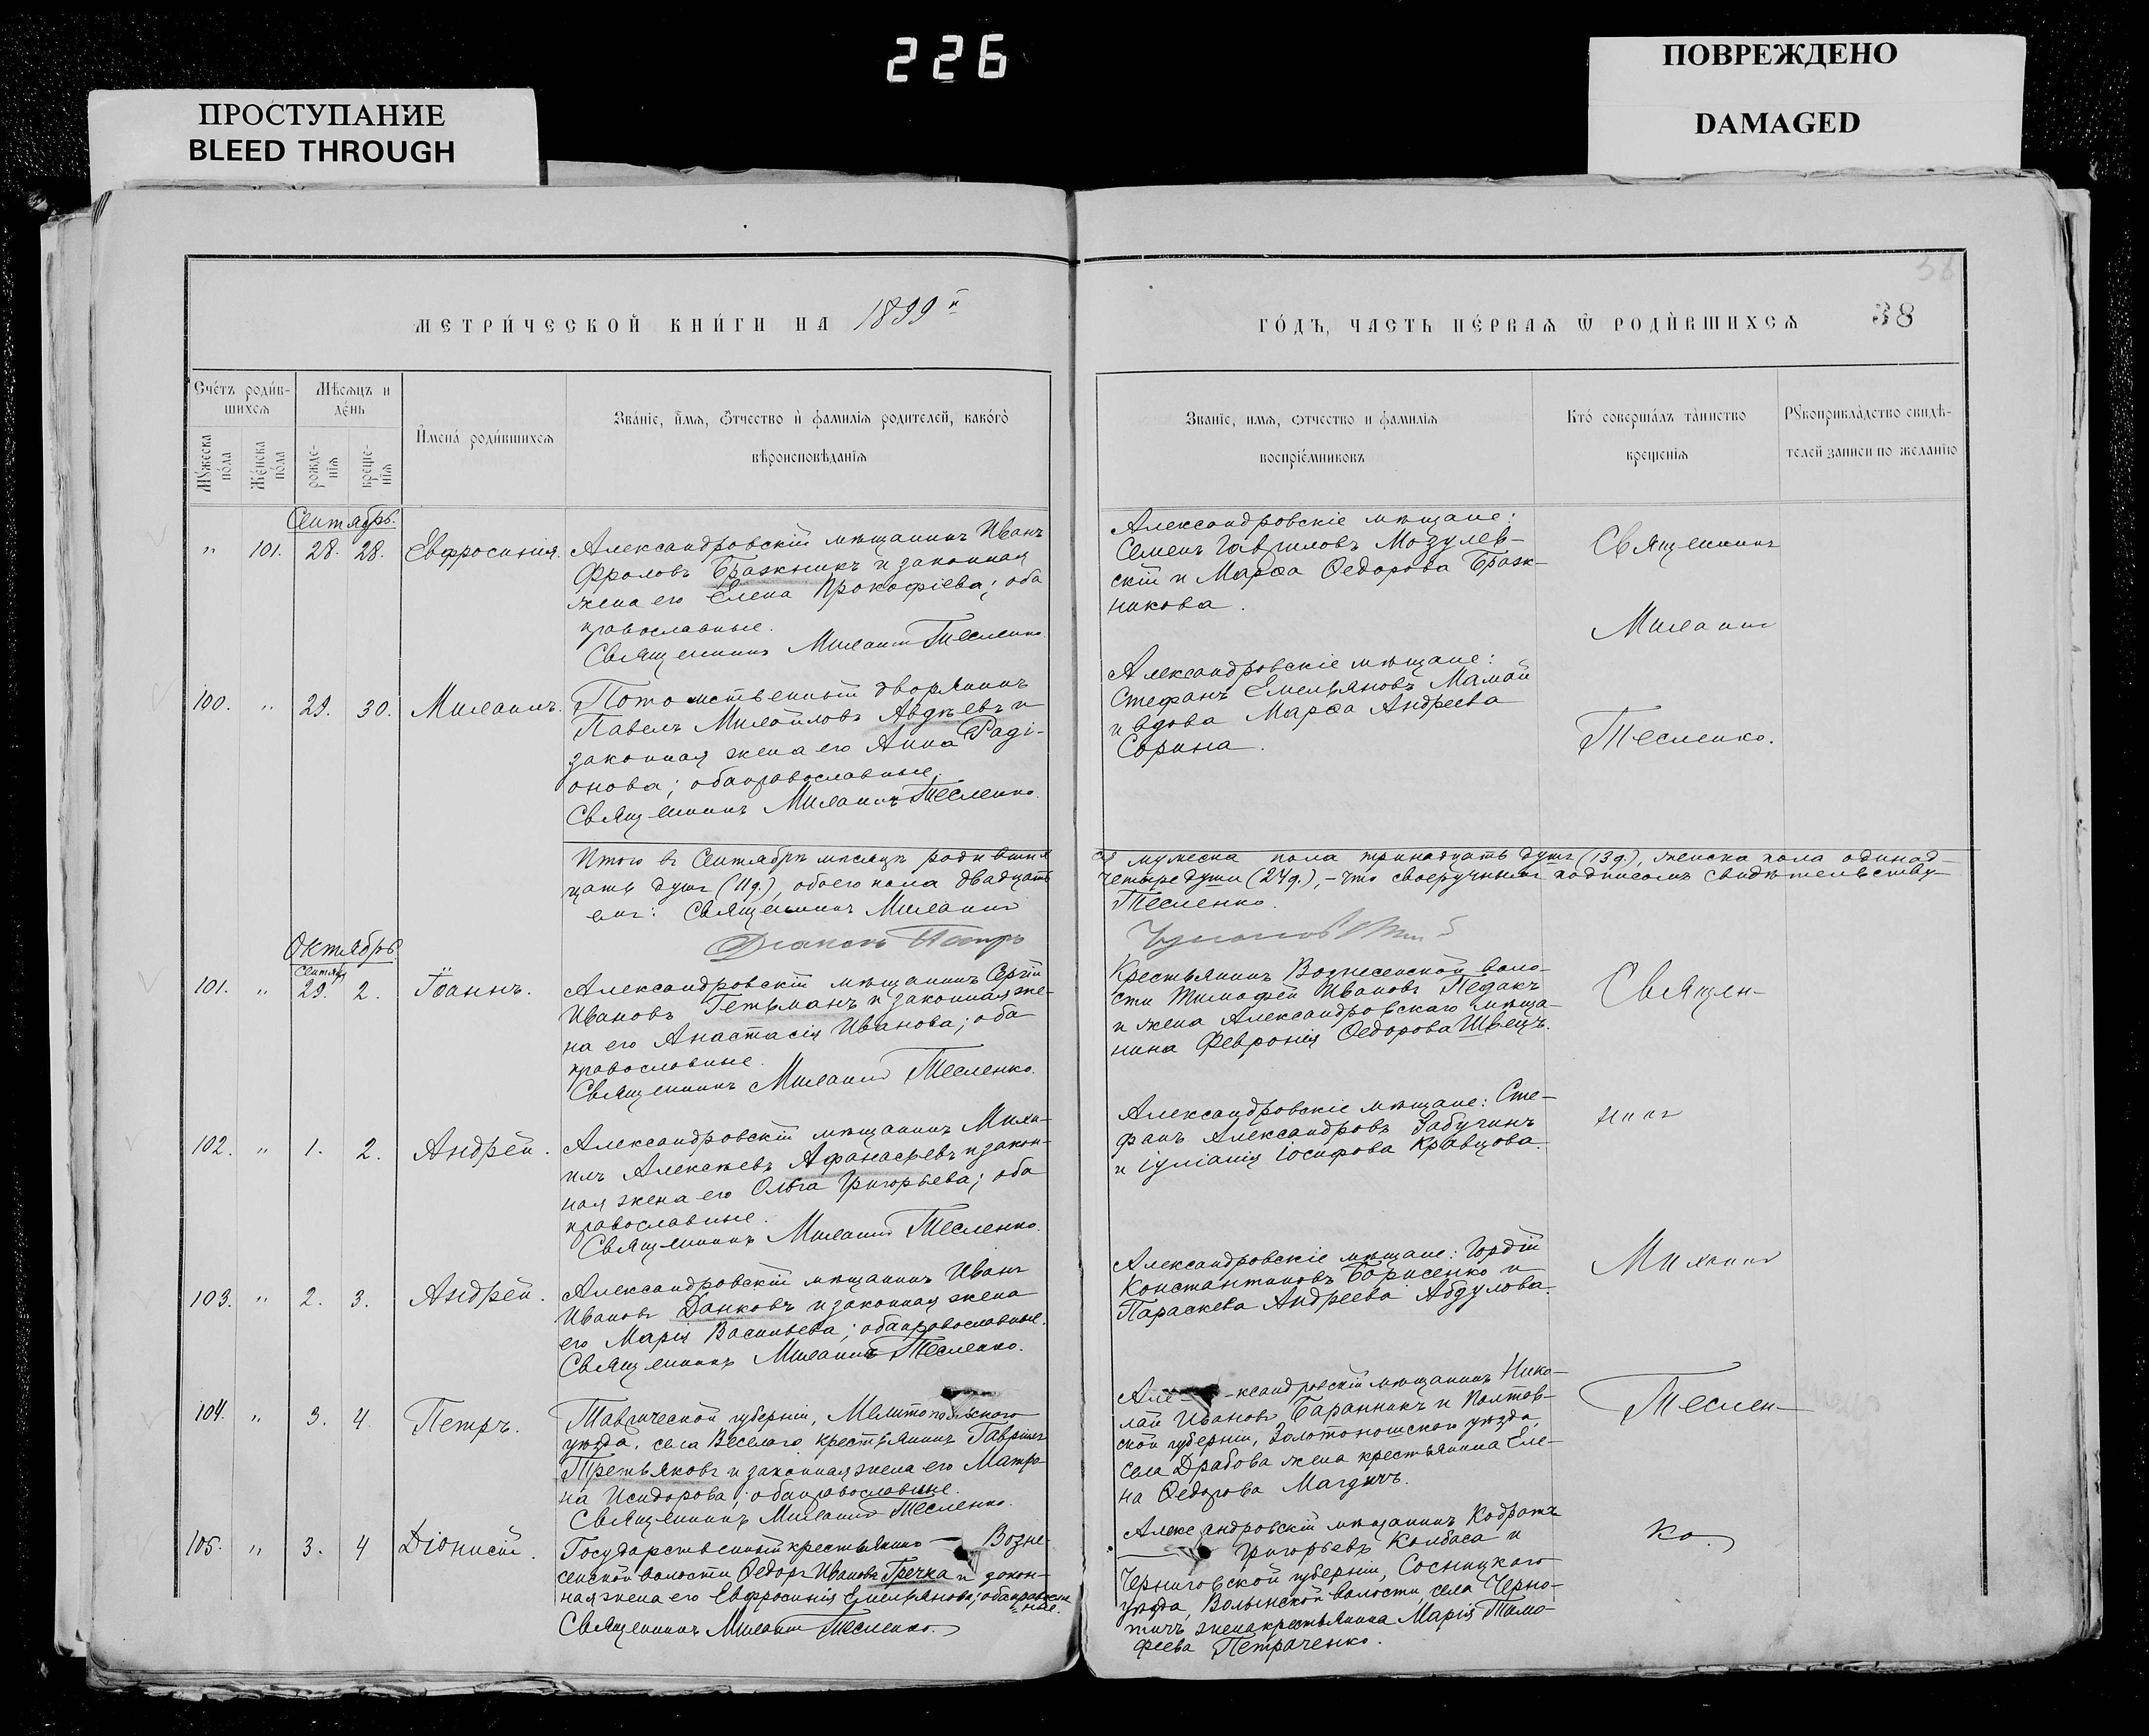 226
ПРОСТУПАНИЕ
BLEED THROUGH
ПОВРЕЖДЕНО
DAMAGED
МЕТРИ́ЧЕСКОЙ КНИ́ГИ НА 1899й
ГО́ДЪ, ЧАСТЬ ПЕ́РВАѦ Ѿ РОДИ́ВШИХСѦ
38
Сче́тъ роди́в-
шихсѧ
Мѣ́сѧцъ и
де́нь
Му́жеска
по́ла
Же́нска
по́ла
рожде-
нїѧ
креще-
нїѧ
И҆мена́ роди́вшихсѧ
Зва́нїе, и҆́мѧ, ѻ҆́тчество и҆ фами́лїѧ роди́телей, како́гѡ
вѣроисповѣ́данїѧ
Званїе, имѧ, ѻтчество и фамилїѧ
воспрїе́мниковъ
Кто́ соверша́лъ та́инство
креще́нїѧ
Рꙋкоприкла́дство свидѣ́-
телей записи по жела́нїю
Сентябрь.
" 101. 28. 28. Евфросинія.
Александровскій мѣщанинъ Иванъ
Фроловъ Бражникъ и законная
жена его Елена Прокофіева; оба
православные.
Священникъ Михаилъ Тесленко
Александровскіе мѣщане:
Семенъ Гавриловъ Мозулев-
скій и Марѳа Ѳедорова Браж-
никова.
Священникъ
Михаилъ
Тесленко.
100. " 29. 30. Михаилъ.
Потомственный дворянинъ
Павелъ Михайловъ Авдѣевъ и
законная жена его Анна Раді-
онова; оба православные.
Священникъ Михаилъ Тесленко.
Александровскіе мѣщане:
Стефанъ Емельяновъ Мамай
и вдова Марѳа Андреева
Сорина.
Итого въ Сентябрѣ мѣсяцѣ родивших
ся мужеска пола тринадцать душъ (13 д.), женска пола одинад-
цать душъ (11 д.), обоего пола двадцать
четыре души (24 д.), – что своеручнымъ подписомъ свидѣтельству-
емъ: Священникъ Михаилъ
Тесленко.
Діаконъ Петръ
Октябрь
Сентяб.
101. " 29. 2. Іоаннъ.
Александровскій мѣщанинъ Сергій
Ивановъ Гетьманъ и законная же-
на его Анастасія Иванова; оба
православные.
Священникъ Михаилъ Тесленко.
Крестьянинъ Вознесенской воло-
сти Тимофей Ивановъ Педакъ
и жена Александровскаго мѣща-
нина Февронія Ѳедорова Швецъ.
Священ-
никъ
Михаилъ
Теслен-
ко.
102. " 1. 2. Андрей.
Александровскій мѣщанинъ Миха-
илъ Алексѣевъ Афанасьевъ и закон-
ная жена его Ольга Григорьева; оба
православные.
Священникъ Михаилъ Тесленко.
Александровскіе мѣщане: Сте-
фанъ Александровъ Забугинъ
и Іуліанія Іосифова Кравцова.
103. " 2. 3. Андрей.
Александровскій мѣщанинъ Иванъ
Ивановъ Данковъ и законная жена
его Марія Васильева; оба православные.
Священникъ Михаилъ Тесленко.
Александровскіе мѣщане: Гордій
Константиновъ Борисенко и
Параскева Андреева Абдулова.
104. " 3. 4. Петръ.
Таврической губерніи, Мелитопольского
уѣзда, села Веселаго крестьянинъ Гавріилъ
Третьяковъ и законная жена его Матро-
на Исидорова; оба православные.
Священникъ Михаилъ Тесленко.
Але-ксандровскій мѣщанинъ Нико-
лай Ивановъ Баранникъ и Полтав-
ской губерніи, Золотоношскаго уѣзда,
села Драбова жена крестьянина Еле-
на Ѳедорова Магдичъ.
105. " 3. 4 Діонисій.
Государственный крестьянинъ – Возне-
сенской волости Ѳедоръ Ивановъ Гречка и закон-
ная жена его Евфросинія Емельянова; оба православ
ные.
Священникъ Михаилъ Тесленко.
Александровскій мѣщанинъ Кодратъ
Григорьевъ Колбаса и
Черниговской губерніи, Сосницкаго
уѣзда, Волынской волости, села Черно-
тичъ жена крестьянина Марія Тимо-
феева Петраченко.